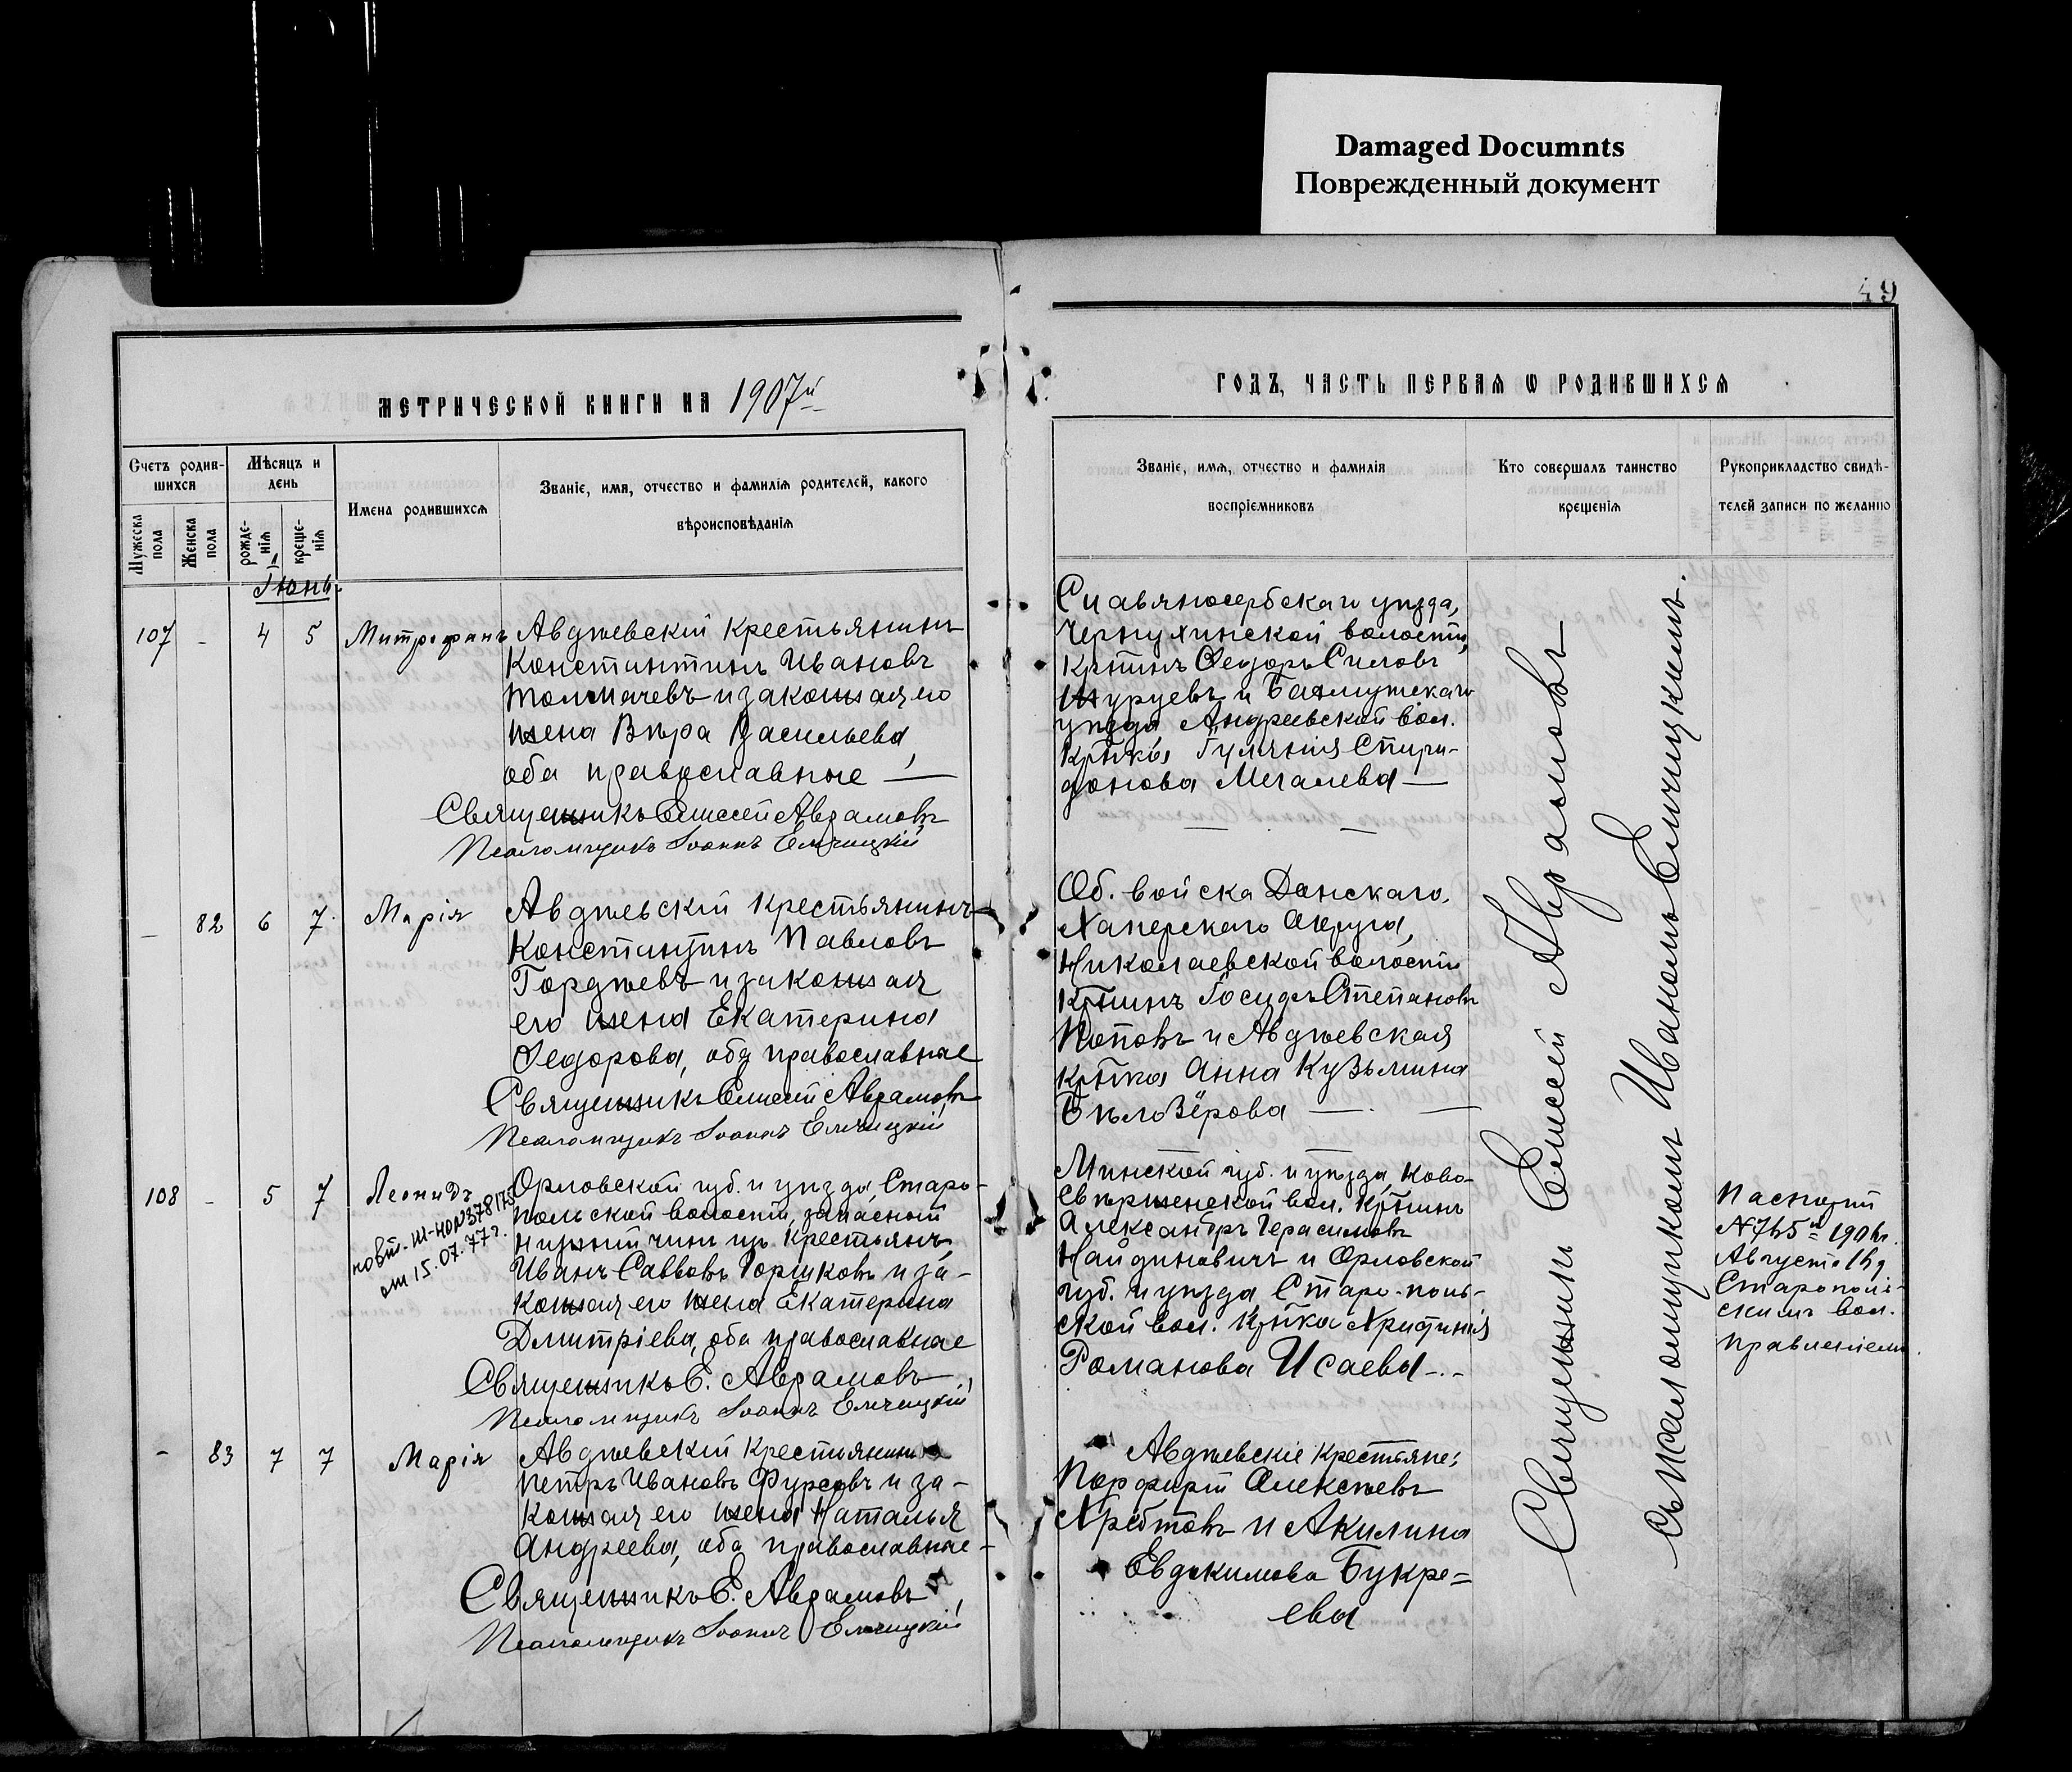 Damaged Documnts
Поврежденный документ
49
МЕТРИЧЕСКОЙ КНИГИ НА 1907й
ГОДЪ, ЧАСТЬ ПЕРВАЯ Ѡ РОДИВШИХСЯ
Счетъ родив-
шихся
Мужеска
пола
Женска
пола
Мѣсяцъ и
день
рожде-
нія
креще-
нія
Имена родившихся
Званіе, имя, отчество и фамилія родителей, какого
вѣроисповѣданія
Званіе, имя, отчество и фамилія
воспріемниковъ
Кто совершалъ таинство
крещенія
Рукоприкладство свидѣ-
телей записи по желанію
Іюнь.
107 - 4 5 Митрофанъ
Авдѣевскій крестьянинъ
Константинъ Ивановъ
Толмачевъ и законная его
жена Вѣра Васильева,
оба православные —
Священникъ Елисей Авраамовъ
Псаломщикъ Іоаннъ Ельчицкій
Славяносербскаго уѣзда,
Чернухинской волости,
кр-нинъ Ѳедоръ Силовъ
и Бахмутскаго
уѣзда Андреевской вол.
кр-нка Гуліянія Спири-
донова Мегалева —
- 82 6 7. Марія
Авдѣевскій крестьянинъ
Константинъ Павловъ
Гордѣевъ и законная
его жена Екатерина
Ѳедорова, оба православные
Священникъ Елисей Авраамовъ
Псаломщикъ Іоаннъ Ельчицкій
Об. войска Донскаго,
Хоперскаго округа,
Николаевской волости
кр-нинъ Іосифъ Степановъ
Поповъ и Авдѣевская
кр-нка Анна Кузьмина
Бѣлозёрова —
108 - 5 7 Леонидъ
повт. III-НО N378175
от 15.07.77г.
Орловской губ. и уѣзда, Старо-
польской волости, запасной
нижній чинъ изъ крестьянъ,
Иванъ Савовъ Горшковъ и за-
конная его жена Екатерина
Дмитріева, оба православные
Священникъ Е. Авраамовъ
Псаломщикъ Іоаннъ Ельчицкій
Минской губ. и уѣзда, Ново-
Свержен­ской вол. кр-нинъ
Александръ Герасимовъ
Найдиновичъ и Орловской
губ. и уѣзда Старо-поль-
ской вол. кр-нка Христинія
Романова Исаева -.-
Паспортъ
Августа 16 д
Старополь-
скимъ вол.
правленіемъ.
- 83 7 7 Марія
Авдѣевскій крестьянинъ
Петръ Ивановъ Фурсовъ и за-
конная его жена Наталья
Андреева, оба православные -
Священникъ Е. Авраамовъ
Псаломщикъ Іоаннъ Ельчицкій
Авдѣевскіе крестьяне:
Порфирій Алексѣевъ
Хребтовъ и Акилина
Евдокимова Букре=
ева
Священникъ Елисей Авраамовъ
съ псаломщикомъ Иваномъ Ельчицкимъ.